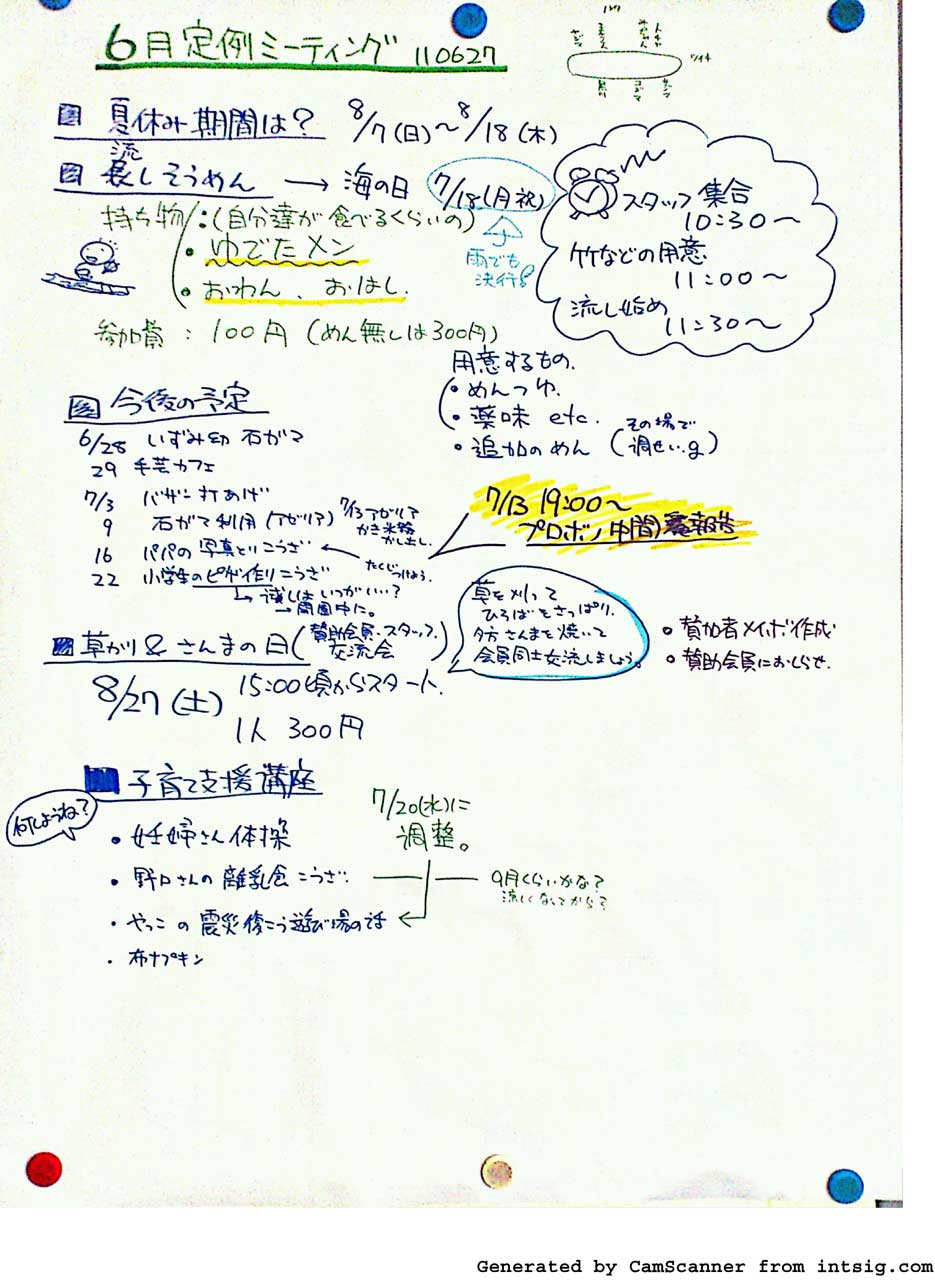 6月定例ミーティング 110627
夏休み期間は? 8/7(日)〜8/18(木)
流しそうめん → 海の日 7/18(月祝)
雨でも
決行!
持ち物/:(自分達が食べるくらいの)
・ゆでたメン
・おわん、おはし.
参加費 : 100円 (めん無しは300円)
スタッフ集合
10:30〜
竹などの用意
11:00〜
流し始め
11:30〜
用意するもの.
・めんつゆ.
・薬味 etc.
・追加のめん (その場で
調せい.g)
今後の予定
6/28 いずみ幼 石ガマ
29 手芸カフェ
7/3 バザー打あげ
9 石ガマ利用(アゼリア)
7/13 アゼリア
かき氷
かし出し.
16 パパの写真とりこうざ
22 小学生のピザ作りこうざ
↳試しはいつがいい…?
→開園中に。
7/13 19:00〜
プロボノ中間報告
草がり&さんまの日(賛助会員・スタッフ.
交流会)
8/27(土) 15:00頃からスタート.
1人 300円
草を刈って
ひろばをさっぱり.
夕方さんまを焼いて
会員同士交流しましょう。
・賛助会員におしらせ.
子育て支援講座
何しようね?
・妊婦さん体操
・野口さんの離乳食こうざ
・やっこの震災復こう遊び場の話
・布ナプキン
7/20(水)に
調整。
9月くらいかな?
涼しくなってから?
Generated by CamScanner from intsig.com